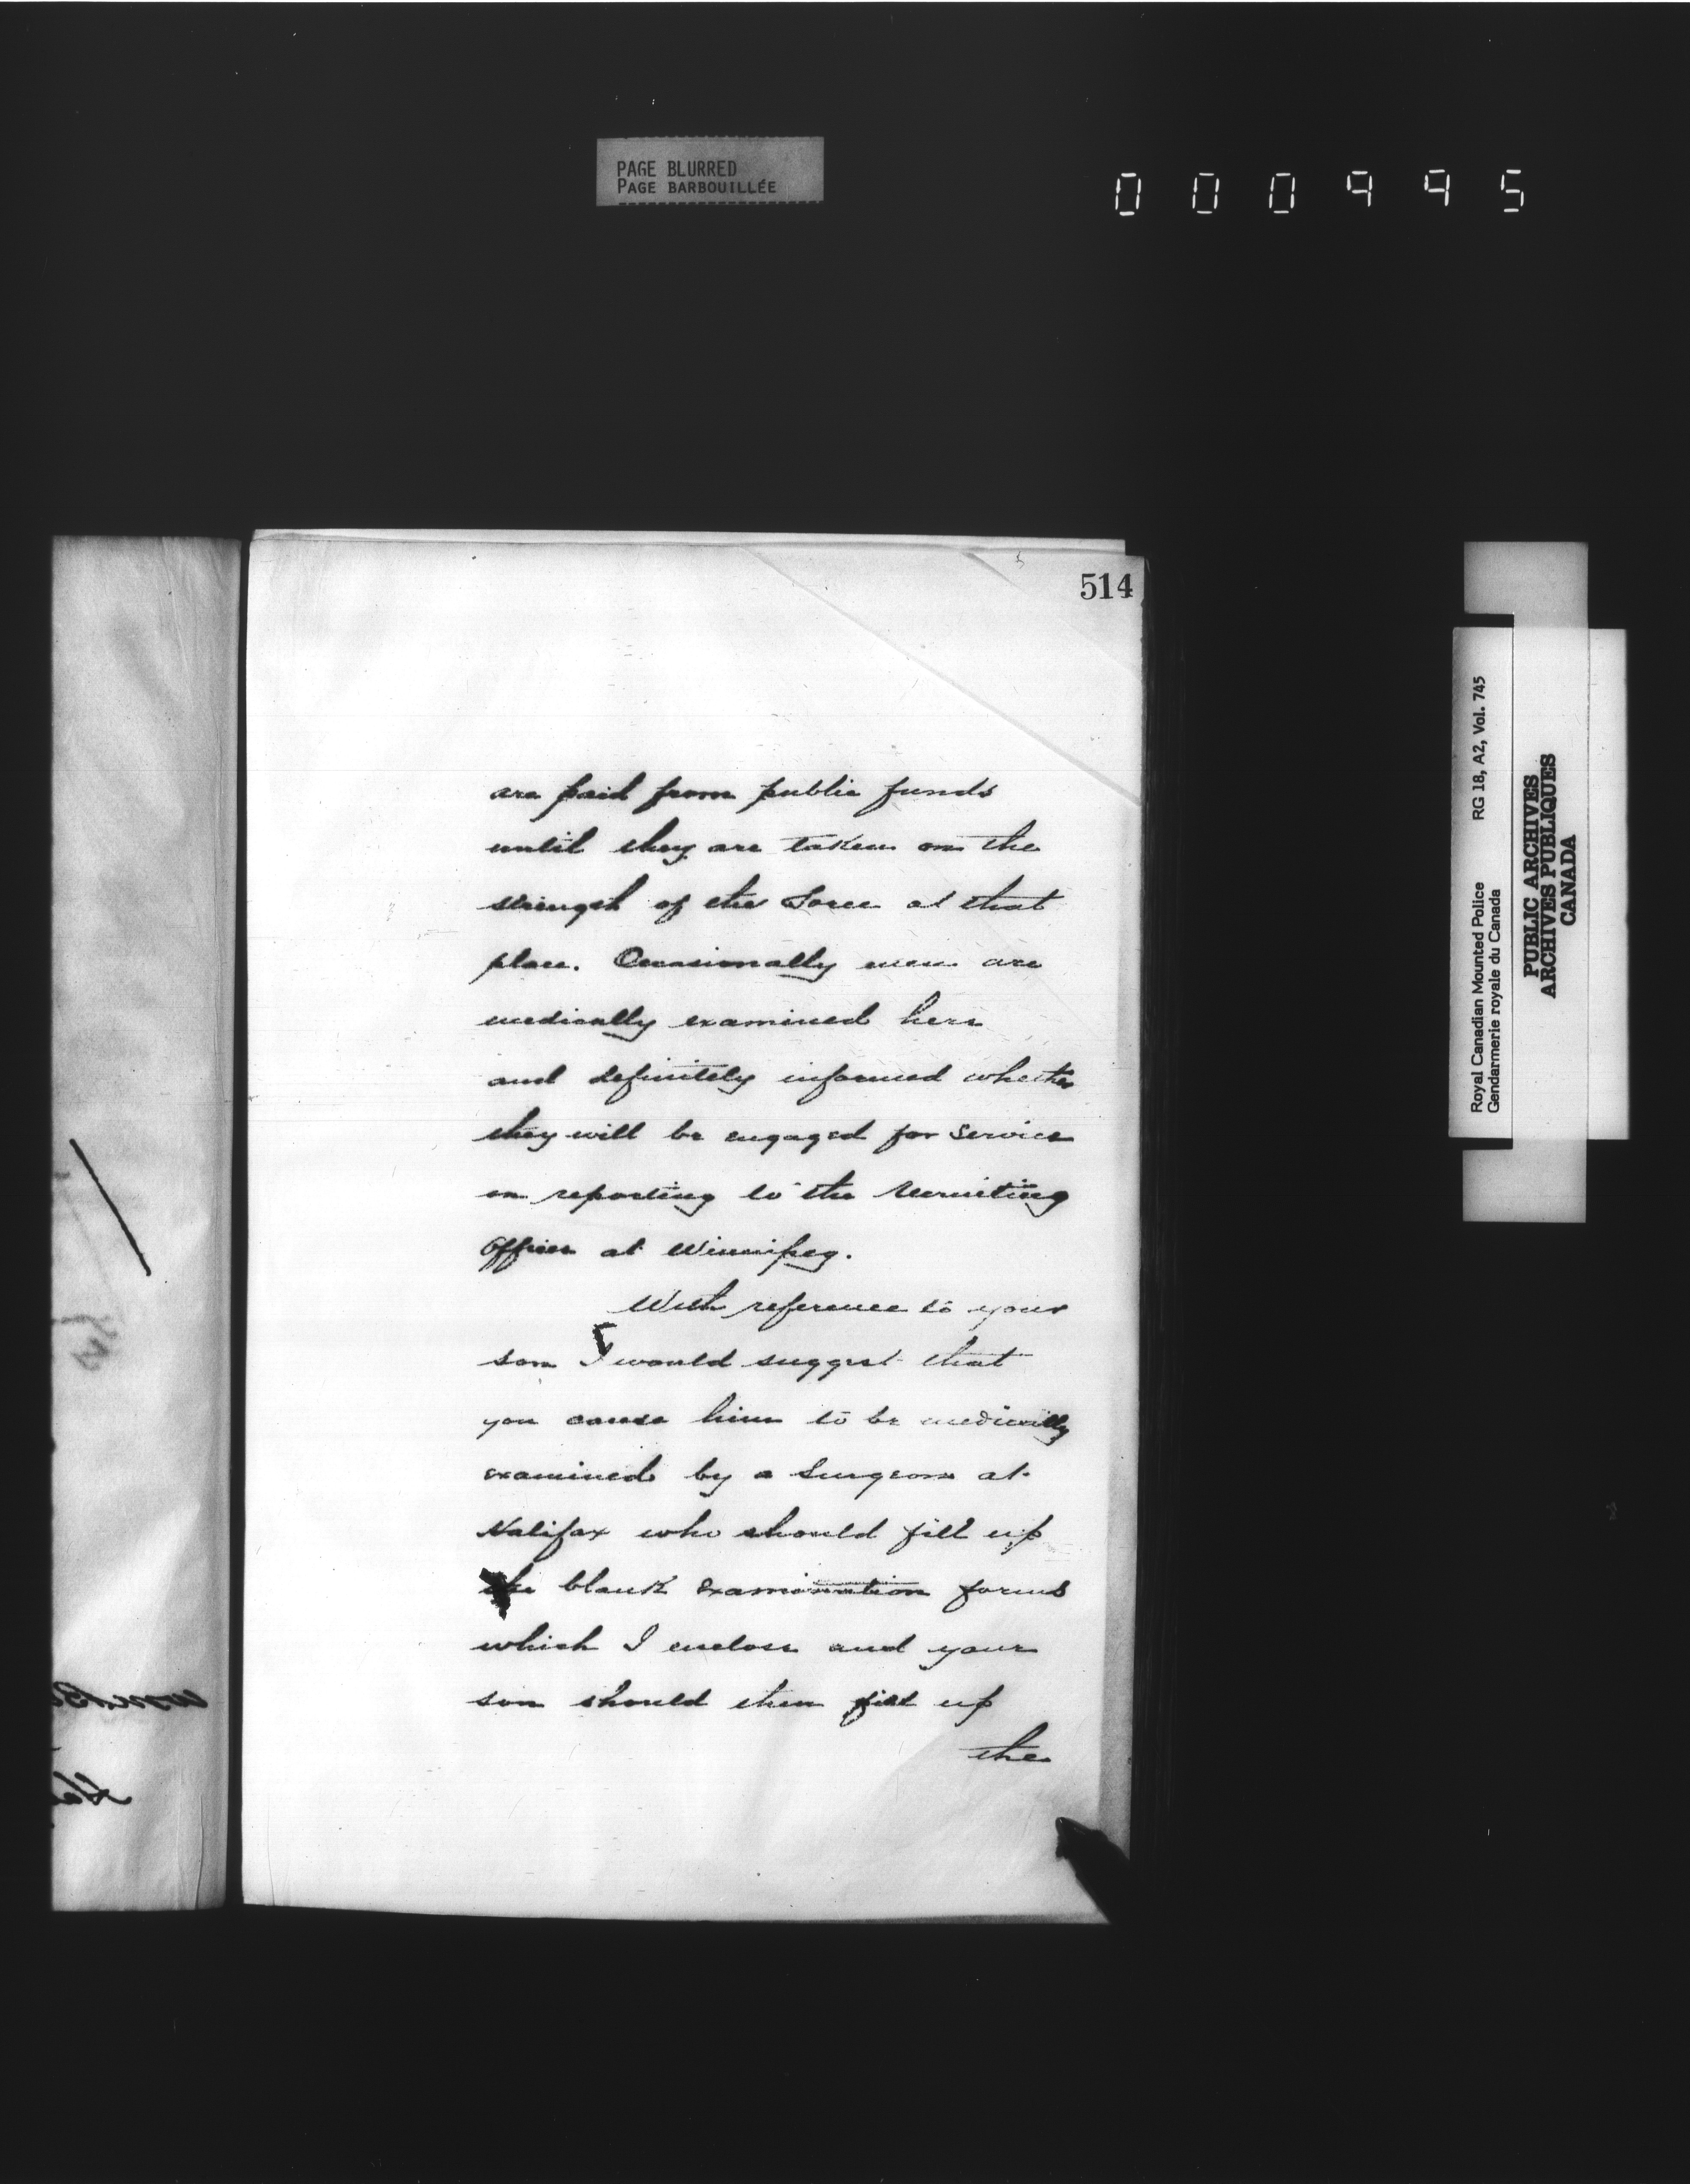 PAGE BLURRED
PAGE BARBOUILLÉE
000995
514
are paid from public funds
until they are taken on the
strength of the Force at that
place. Occasionally men are
medically examined here
and definitely informed whether
they will be engaged for service
on reporting to the Recruiting
Officer at Winnipeg.
With reference to your
son I would suggest that
you cause him to be medically
examined by a Surgeon at
Halifax who should fill up
the blank examination forms
which I enclose and your
son should then fill up
the
Royal Canadian Mounted Police RG 18, A2, Vol. 745
Gendarmerie royale du Canada
PUBLIC ARCHIVES
ARCHIVES PUBLIQUES
CANADA